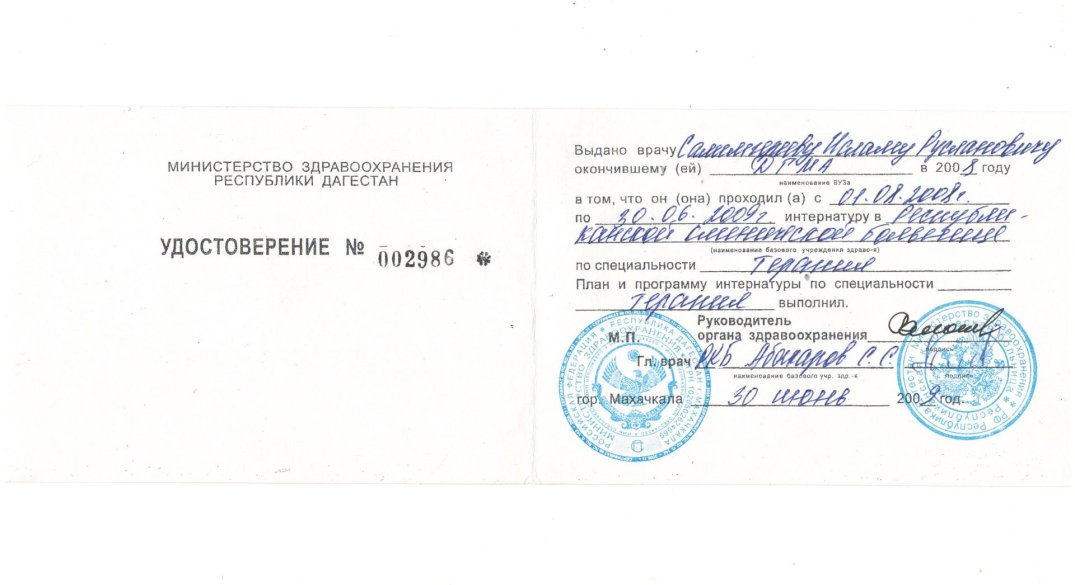 МИНИСТЕРСТВО ЗДРАВООХРАНЕНИЯ
РЕСПУБЛИКИ ДАГЕСТАН
УДОСТОВЕРЕНИЕ № 002986 *
Выдано врачу Исламу Руслановичу
окончившему (ей) ДГМА в 2008 году
наименование ВУЗа
в том, что он (она) проходил (а) с 01.08.2008г.
по 30.06.2009г. интернатуру в Республи-
канской клинической больнице
(наименование базового учреждения здраво-я)
по специальности терапия
План и программу интернатуры по специальности
терапия выполнил.
Руководитель
М.П. органа здравоохранения
подпись
Гл. врач РКБ Абакаров С.С.
наименование базового учр. здр.-я подпись
гор. Махачкала 30 июнь 2009 год.